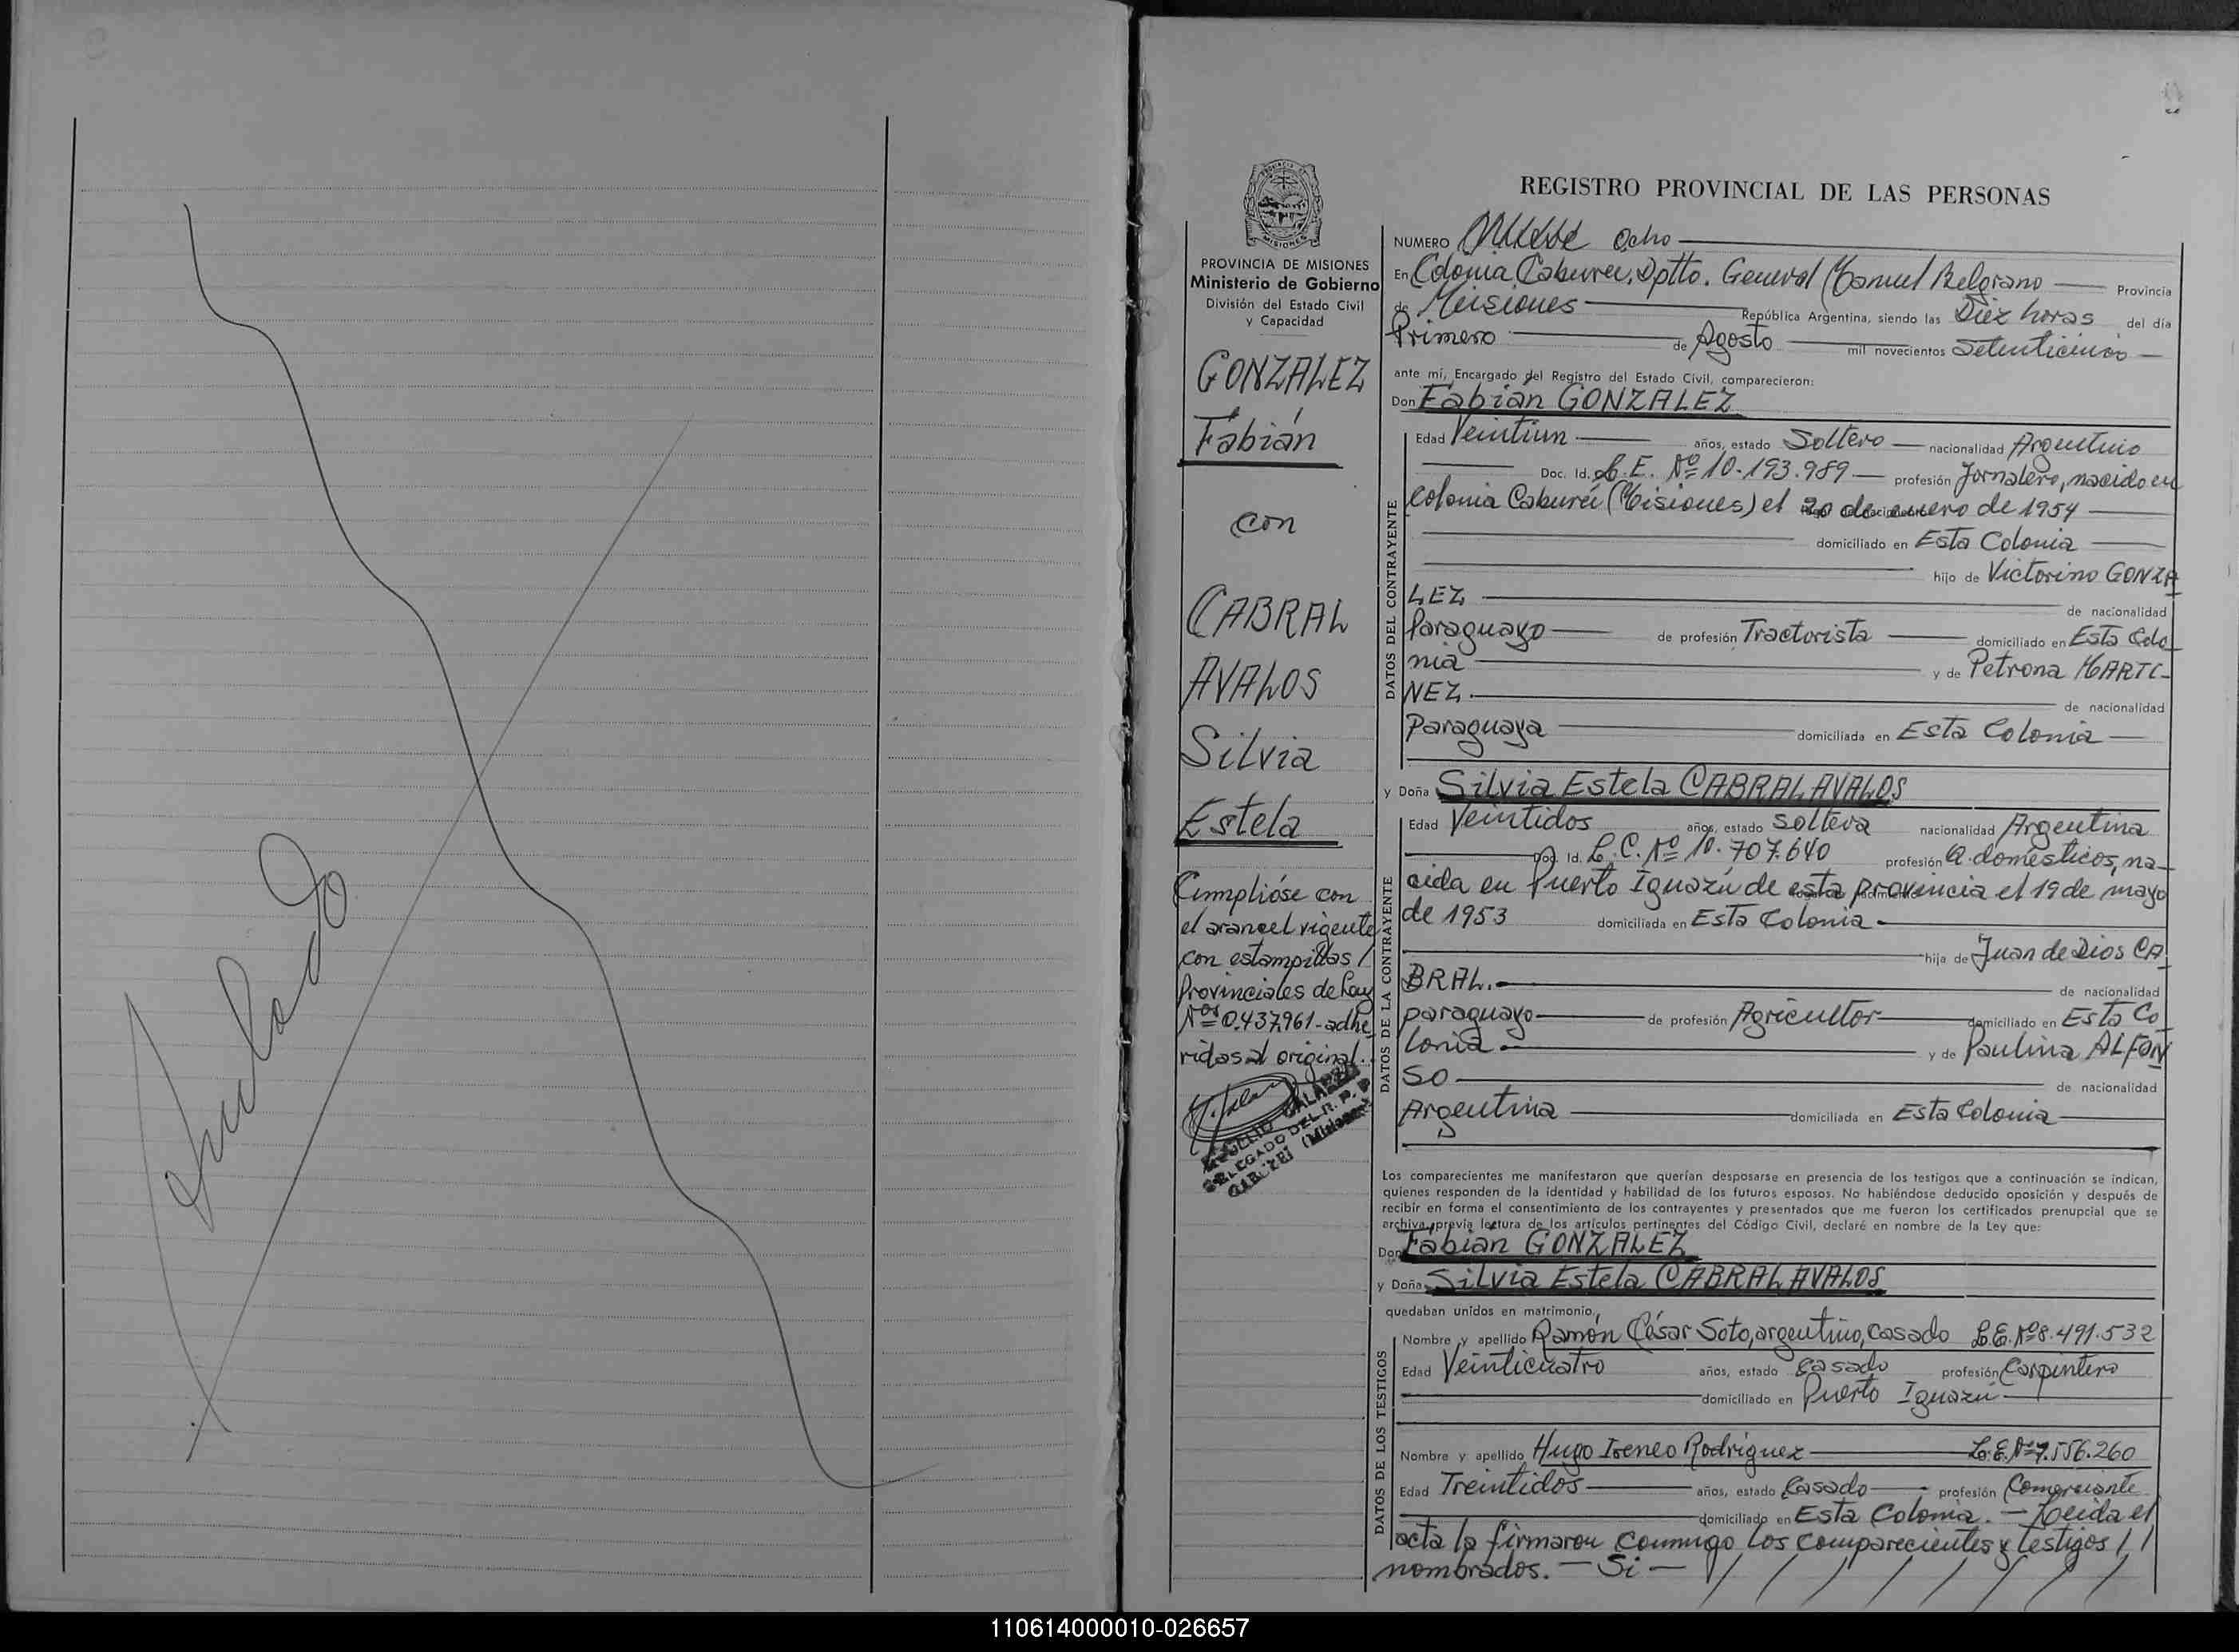 Anulado
PROVINCIA DE MISIONES
Ministerio de Gobierno
División del Estado Civil
y Capacidad
GONZALEZ
Fabián
con
CABRAL
AVALOS
Silvia
Estela
Cumplióse con
el arancel vigente
con estampillas /
Provinciales de Ley
Nos 0.437.961 - adhe
ridas al original.
DELEGADO DEL R. P. P.
(Misiones)
REGISTRO PROVINCIAL DE LAS PERSONAS
NUMERO Ocho
En Colonia Caburei, Dptto. General Manuel Belgrano Provincia
de Misiones República Argentina, siendo las Diez horas del día
Primero de Agosto mil novecientos Setenticinco
ante mí, Encargado del Registro del Estado Civil, comparecieron:
Don Fabián GONZALEZ
DATOS DEL CONTRAYENTE
Edad Veintiun años, estado Soltero nacionalidad Argentino
Doc. Id. L.E. Nº 10.193.989 profesión Jornalero, nacido en
Colonia Caburéi (Misiones) el 20 de enero de 1954
domiciliado en Esta Colonia
hijo de Victorino GONZA
LEZ de nacionalidad
Paraguayo de profesión Tractorista domiciliado en Esta Colo
nia y de Petrona MARTI-
NEZ. de nacionalidad
Paraguaya domiciliada en Esta Colonia
y Doña Silvia Estela CABRAL AVALOS
DATOS DE LA CONTRAYENTE
Edad Veintidos años, estado soltera nacionalidad Argentina
Doc. Id. L.C. Nº 10.707.640 profesión Q. domésticos, na-
cida en Puerto Iguazú de esta provincia el 19 de mayo
de 1953 domiciliada en Esta Colonia
hija de Juan de Dios CA
BRAL. de nacionalidad
paraguayo de profesión Agricultor domiciliado en Esta Co
lonia y de Paulina ALFON
SO de nacionalidad
Argentina domiciliada en Esta Colonia
Los comparecientes me manifestaron que querían desposarse en presencia de los testigos que a continuación se indican,
quienes responden de la identidad y habilidad de los futuros esposos. No habiéndose deducido oposición y después de
recibir en forma el consentimiento de los contrayentes y presentados que me fueron los certificados prenupcial que se
archiva, previa lectura de los artículos pertinentes del Código Civil, declaré en nombre de la Ley que:
Don Fabián GONZALEZ
y Doña Silvia Estela CABRAL AVALOS
quedaban unidos en matrimonio,
DATOS DE LOS TESTIGOS
Nombre y apellido Ramón César Soto, argentino, casado L.E. Nº 8.491.532
Edad Veinticuatro años, estado casado profesión Carpintero
domiciliado en Puerto Iguazú
Nombre y apellido Hugo Ireneo Rodriguez L.E. Nº 7.556.260
Edad Treintidos años, estado Casado profesión Comerciante
domiciliado en Esta Colonia. - Leida el
acta la firmaron conmigo los comparecientes y testigos //
nombrados. - Si -
110614000010-026657